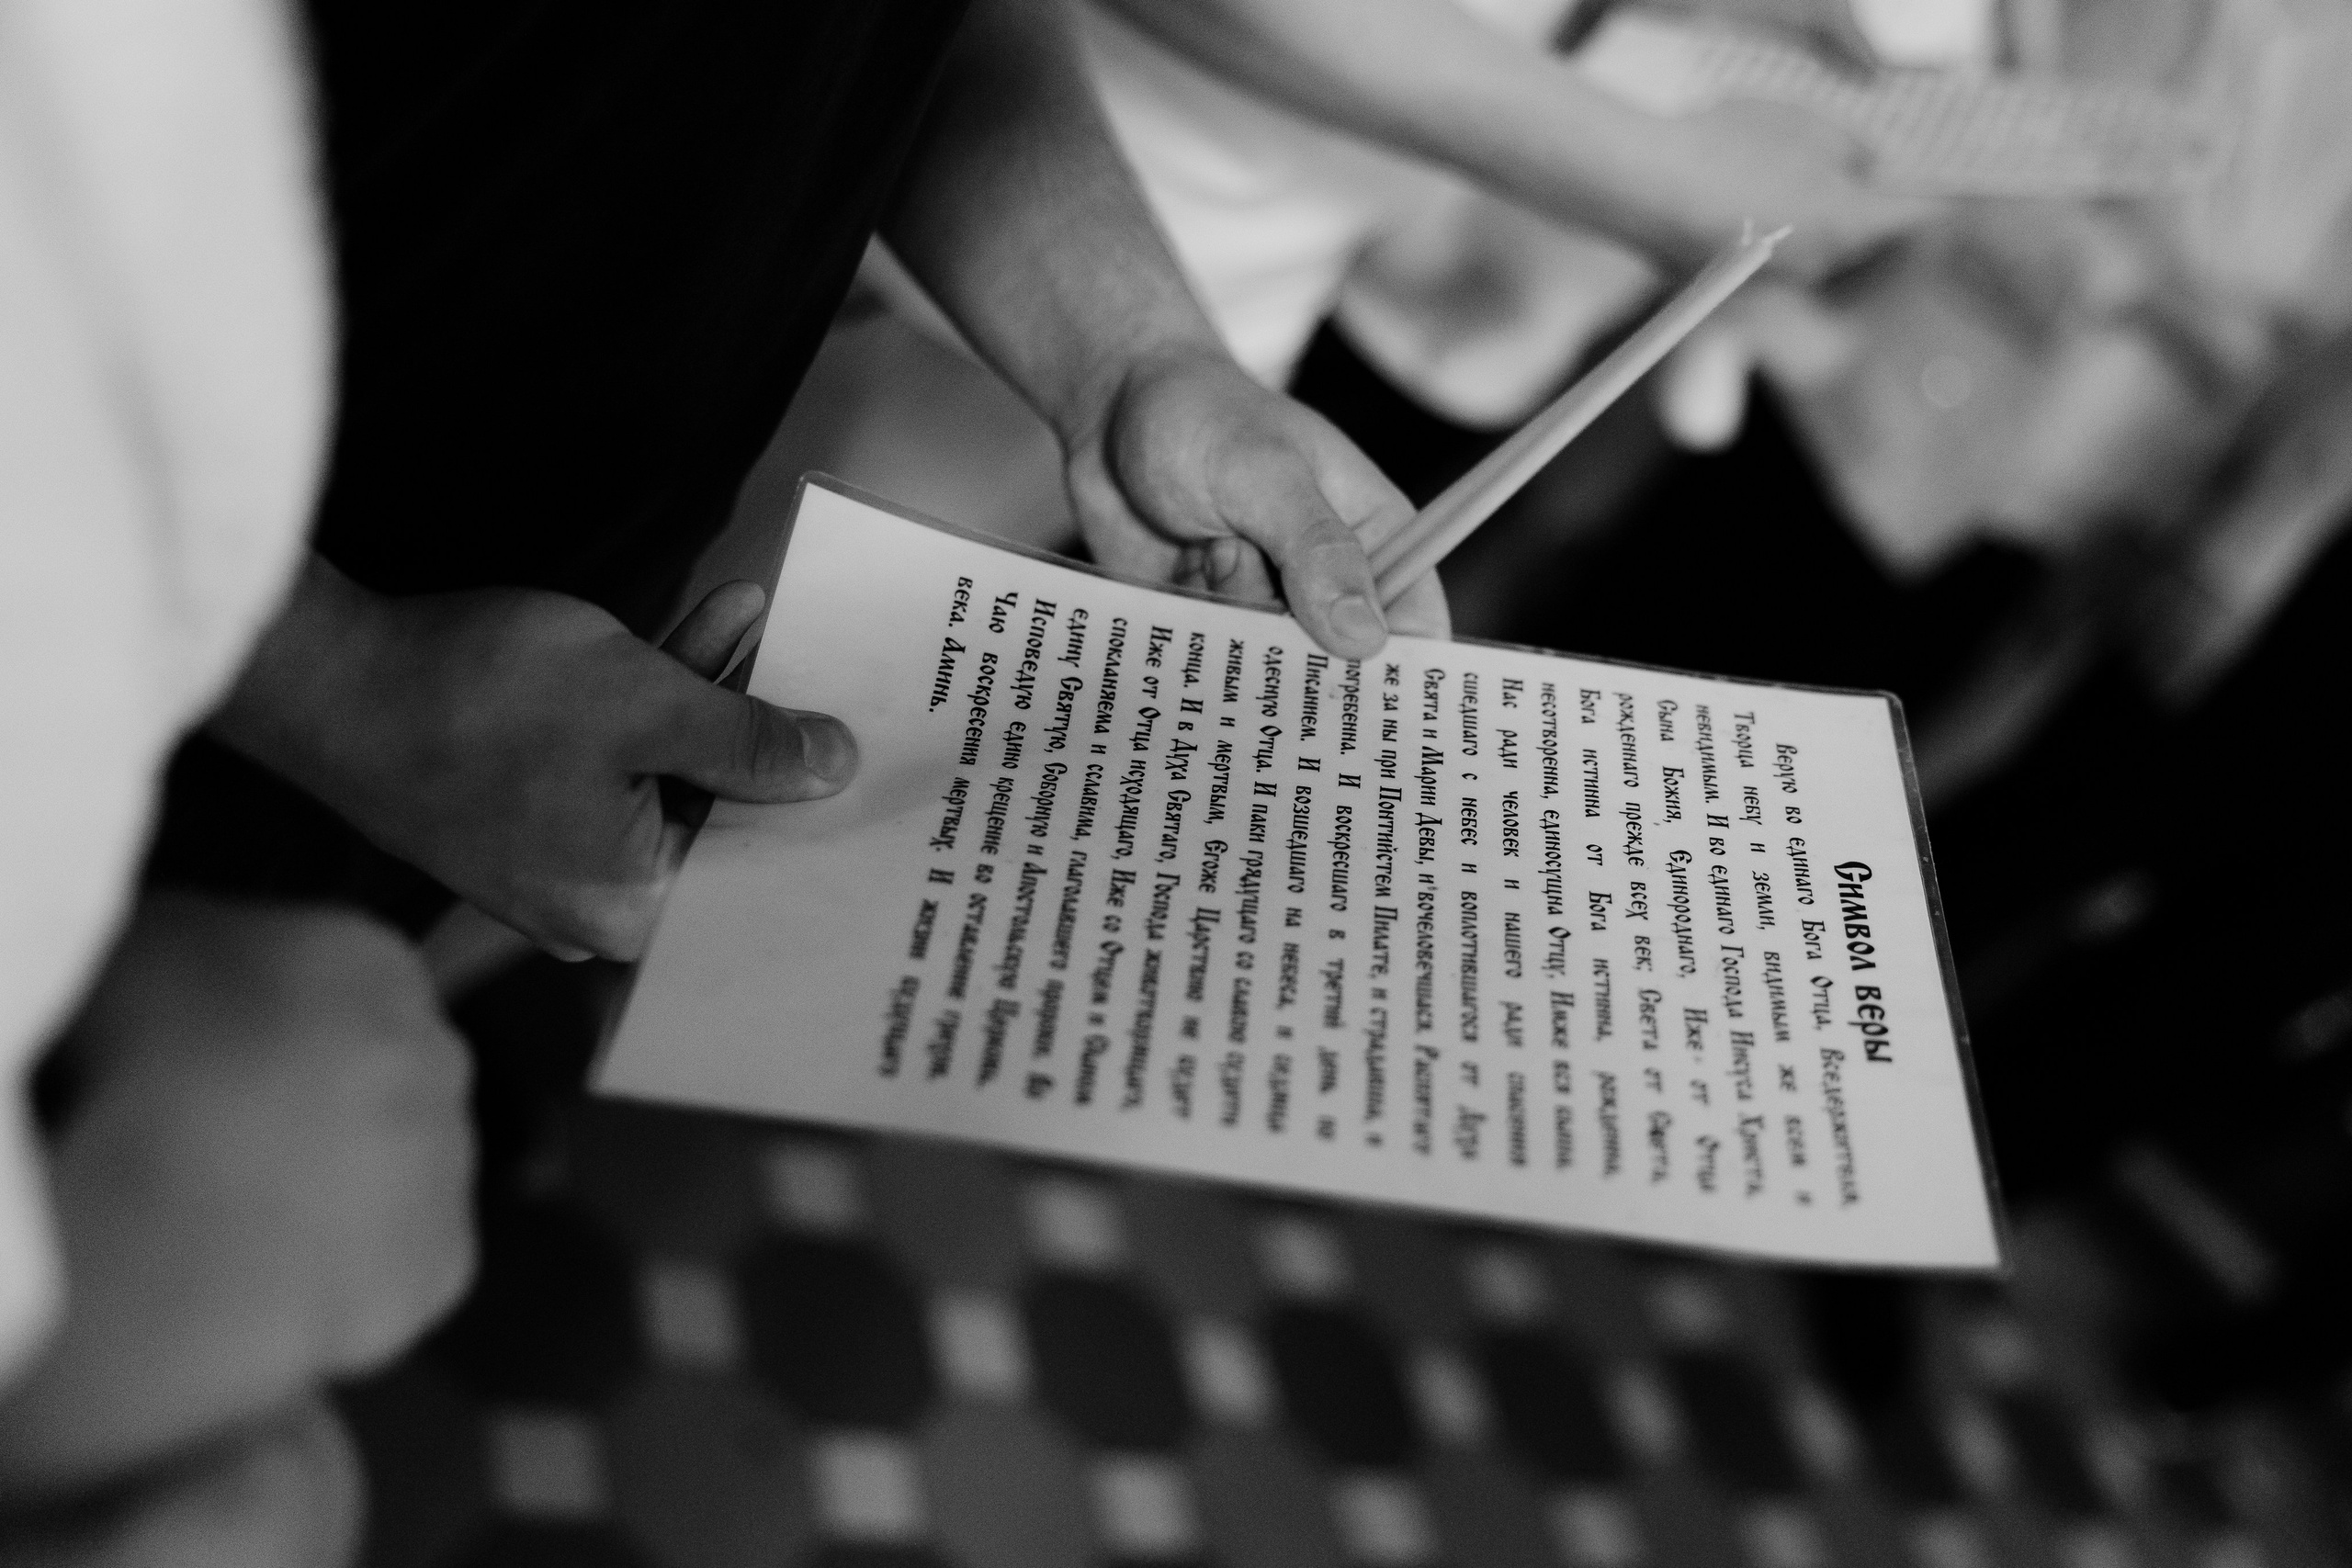 Символ веры
Верую во единаго Бога Отца, Вседержителя,
Творца небу и земли, видимым же всем и
невидимым. И во единаго Господа Иисуса Христа,
Сына Божия, Единороднаго, Иже от Отца
рожденнаго прежде всех век; Света от Света,
Бога истинна от Бога истинна, рожденна,
несотворенна, единосущна Отцу, Имже вся быша.
Нас ради человек и нашего ради спасения
сшедшаго с небес и воплотившагося от Духа
Свята и Марии Девы, и вочеловечшася. Распятаго
же за ны при Понтийстем Пилате, и страдавша, и
погребенна. И воскресшаго в третий день по
Писанием. И возшедшаго на небеса, и седяща
одесную Отца. И паки грядущаго со славою судити
живым и мертвым, Егоже Царствию не будет
конца. И в Духа Святаго, Господа животворящаго,
Иже от Отца исходящаго, Иже со Отцем и Сыном
спокланяема и сславима, глаголавшего пророки. Во
едину Святую, Соборную и Апостольскую Церковь.
Исповедую едино крещение во оставление грехов.
Чаю воскресения мертвых. И жизни будущаго
века. Аминь.